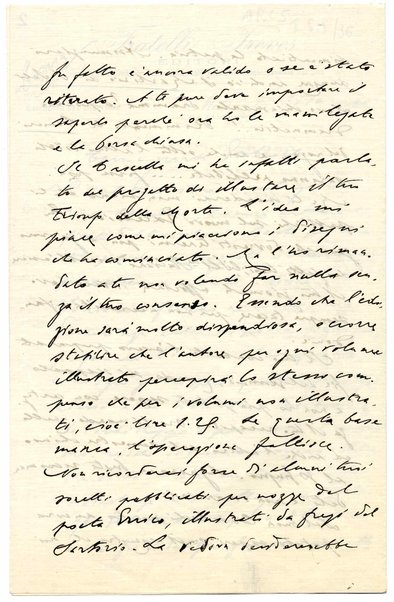 fu fatto è ancora valido o se è stato
ritirato. A te pure deve importare il
saperlo perché ora ho le mani legate
e la borsa chiusa.
Il Cascella mi ha infatti parla-
to del progetto di illustrare il tuo
Trionfo della Morte. L'idea mi
piace come mi piacciono i disegni
che ha cominciato. Ma l'ho riman-
dato a te non volendo far nulla sen-
za il tuo consenso. Essendo che l'edi-
zione sarà molto dispendiosa, occorre
stabilire che l'autore per ogni volume
illustrato percepirà lo stesso com-
penso che per i volumi non illustra-
ti, cioè lire 1.25. Se questa base
manca, l'operazione fallisce.
Non ricorderai forse di alcuni tuoi
pubblicati per nozze del
poeta Errico, illustrati da fregi del
Sartorio. La vedova desidererebbe